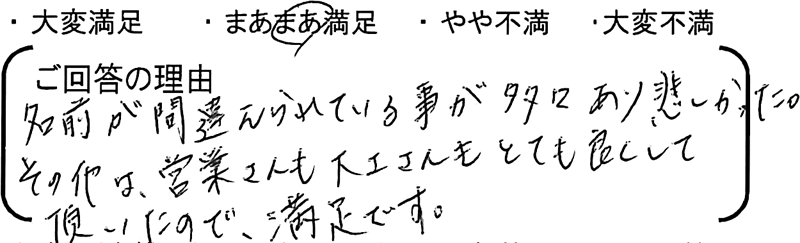 ・大変満足 ・まあまあ満足 ・やや不満 ・大変不満
ご回答の理由
名前が間違えられている事が多々あり悲しかった。
その他は、営業さんも大工さんもとても良くして
頂いたので、満足です。